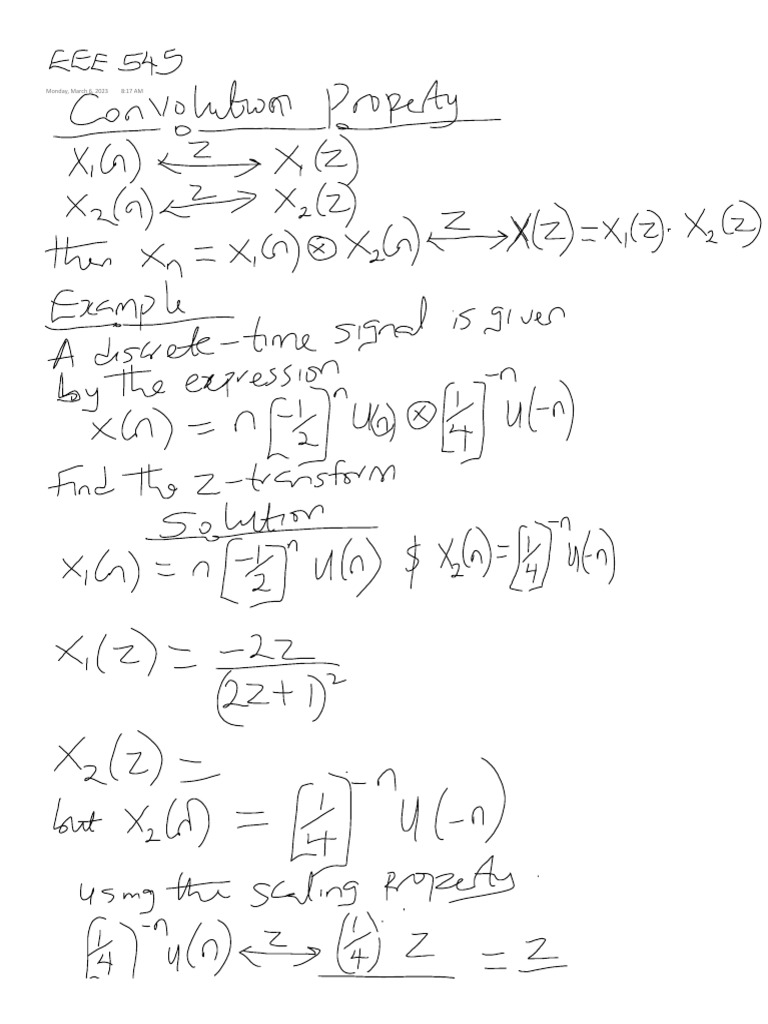 EEE 545
Monday, March 6, 2023 8:17 AM
Convolution Property
X₁(n) <-Z-> X₁(Z)
X₂(n) <-Z-> X₂(Z)
then Xn = X₁(n) ⊗ X₂(n) <-Z-> X(Z) = X₁(Z) · X₂(Z)
Example
A discrete-time signal is given
by the expression
x(n) = n[-1/2]ⁿ u(n) ⊗ [1/4]⁻ⁿ u(-n)
Find the Z-transform
Solution
X₁(n) = n[-1/2]ⁿ u(n) $ X₂(n) = [1/4]⁻ⁿ u(-n)
X₁(Z) = -2Z / (2Z+1)²
X₂(Z) =
but X₂(n) = [1/4]⁻ⁿ u(-n)
using the scaling Property.
(1/4)⁻ⁿ u(n) <-Z-> (1/4) Z = Z